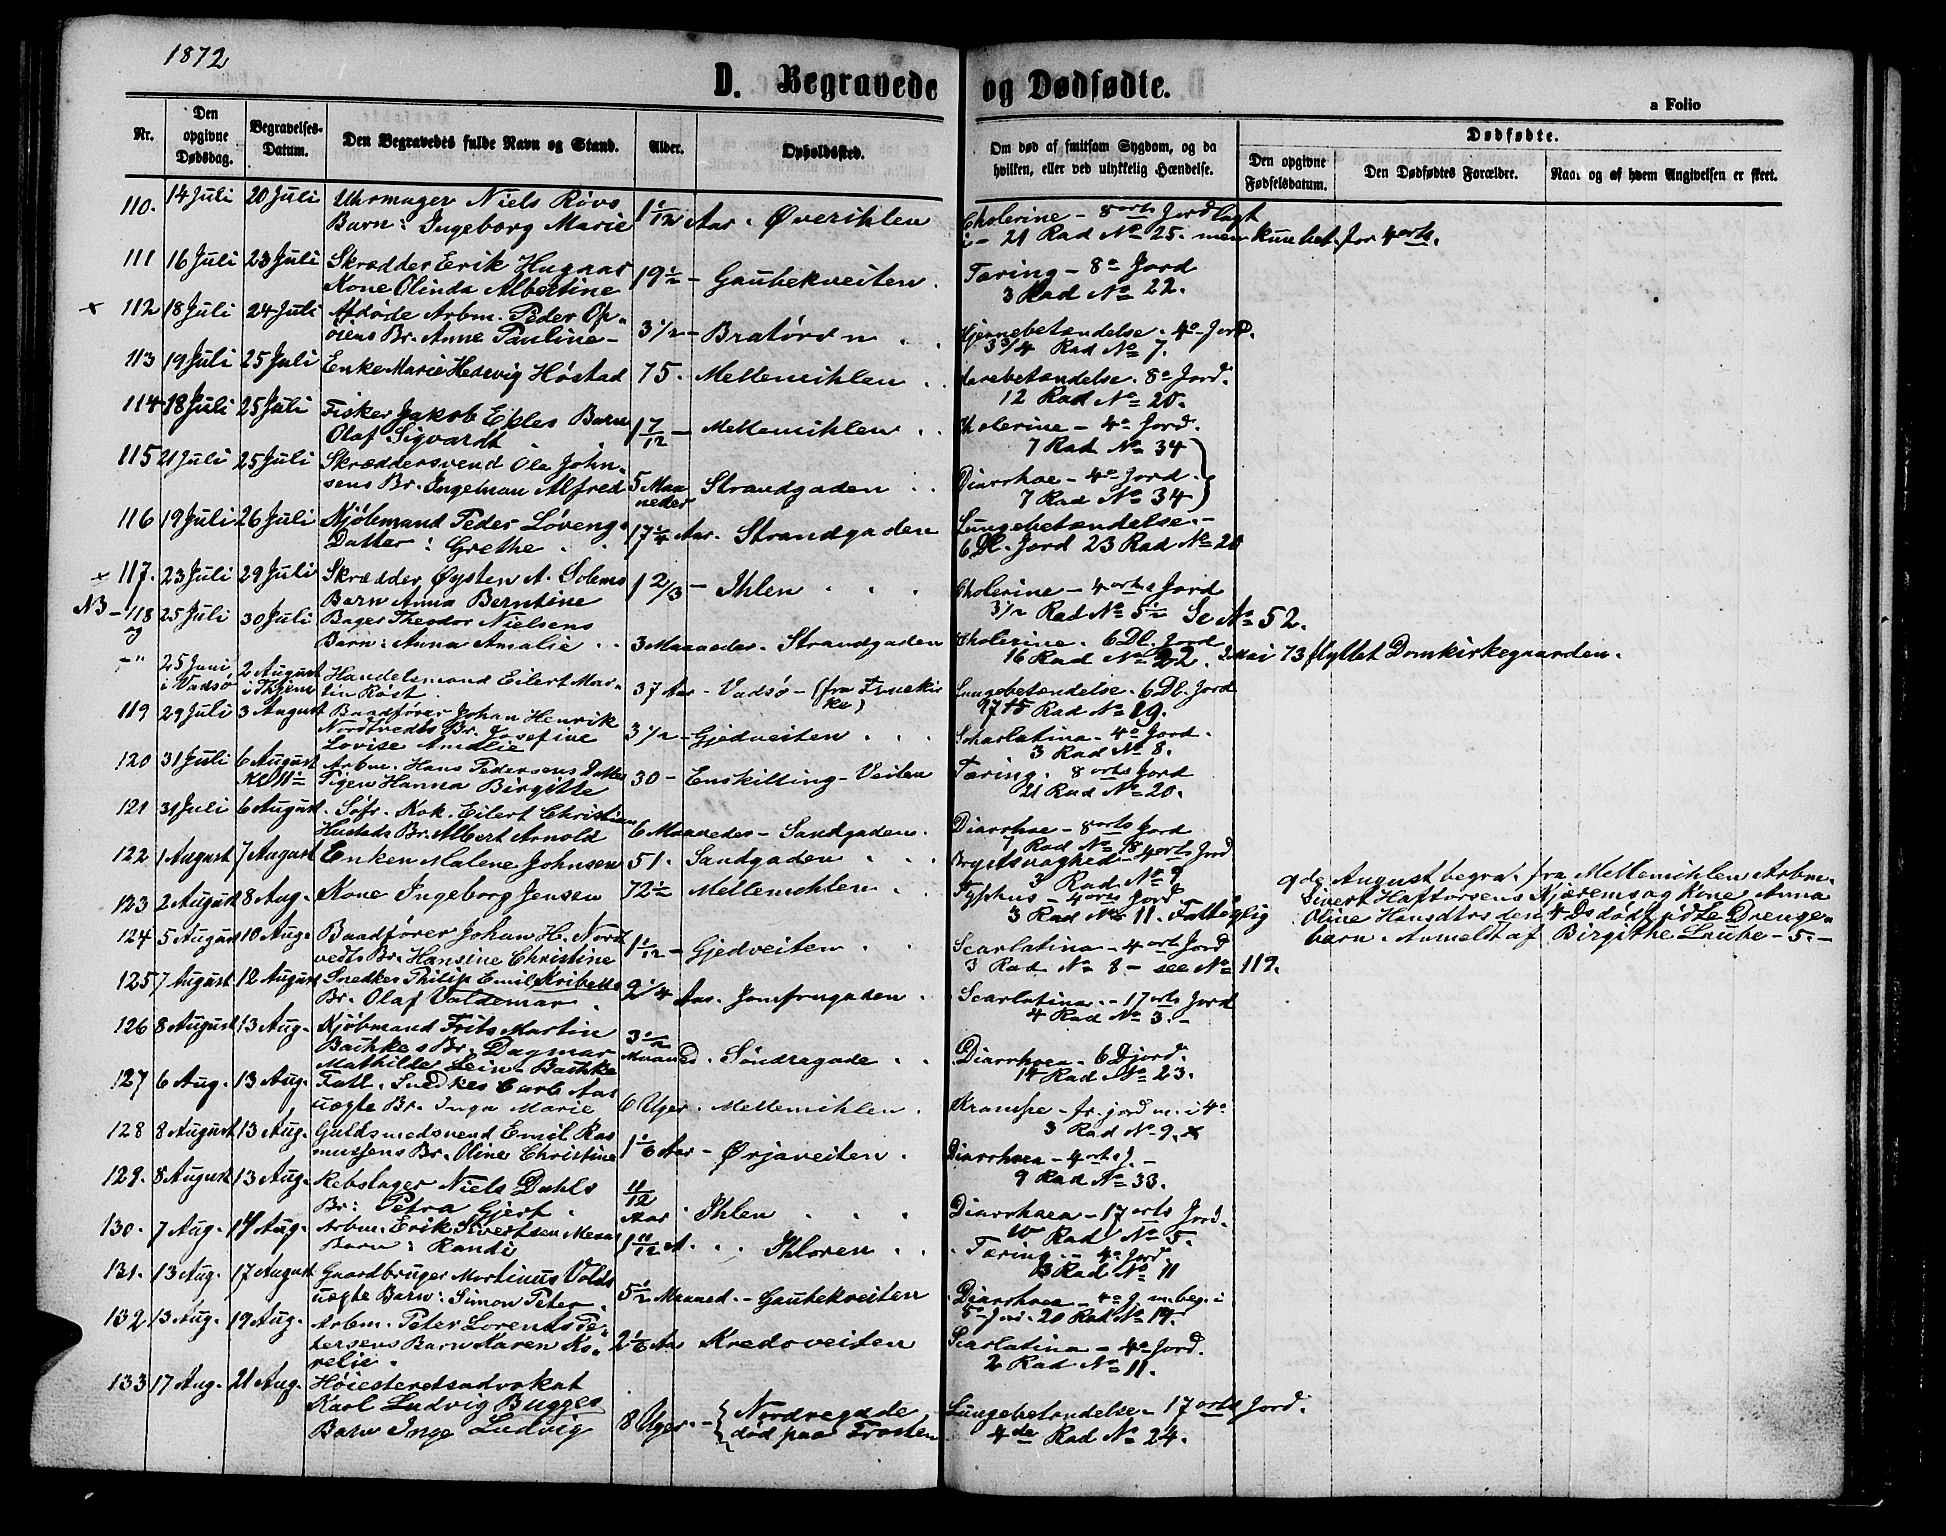 1872
D. Begravede og Dødfødte.
a Folio
Nr.
Den opgivne Dødsdag.
Begravelses-Datum.
Den Begravedes fulde Navn og Stand.
Alder.
Opholdssted.
Om død af smitsom Sygdom, og da hvilken, eller ved ulykkelig Hændelse.
Dødfødte.
Den opgivne Fødselsdatum.
Den Dødfødtes Forældre.
Naar og af hvem Angivelsen er skeet.
110. 14 Juli 20 Juli Uhrmager Niels Røvs
Barn: Ingeborg Marie 1 1/12 Aar. Øverihlen Cholerine - 8 orts Jord lagt
i - 21 Rad No 25. men kun bet. for 4 orts.
111 16 Juli 23 Juli Skrædder Erik Hugaas
Kone Olinda Albertine 19 1/2 - Gaubekveiten. Tæring - 8o Jord
3 Rad No 22.
x 112 18 Juli 24 Juli Afdøde Arbm. Peder Op-
öiens Br. Anne Pauline - 3 1/2 - Bratøren . . Hjernebetændelse. 4o Jord.
3 3/4 Rad No 7.
113 19 Juli 25 Juli Enke Marie Hedevig Høstad 75. Mellemihlen . . 8o Jord.
12 Rad No 20.
114 18 Juli 25 Juli Fisker Jakob Eples Barn
Olaf Sigvardt 1 7/12 - Mellemihlen . . Cholerine - 4o Jord.
7 Rad No 34
115 21 Juli 25 Juli Skræddersvend Ole John-
sens Br. Ingelman Alfred 5 Maaneder Strandgaden . . Diarrhoe - 4o Jord.
7 Rad No 34
116 19 Juli 26 Juli Kjöbmand Peder Løvengs
Datter: Grethe . . 17 1/4 Aar. Strandgaden Lungebetændelse. -
6 Dl. Jord 23 Rad No 20
x 117. 23 Juli 29 Juli Skrædder Øysten A. Solems
Barn Anna Berntine 1 2/3 - Ihlen . . . Cholerine - 4 orts Jord
3 1/2 Rad No 5 1/2 Se No 52.
NB - 118 25 Juli 30 Juli Bager Theodor Nielsens
og
Barn: Anna Amalie . . 3 Maaneder. Strandgaden Cholerine. 6 Dl. Jord
16 Rad No 22. 2 Mai 73 flyttet Domkirkegaarden.
- " 25 Juni i Vadsø 2 August i Thjem Handelsmand Eilert Mar-
tin Røst . 37 Aar - Vadsø - (fra Fruekirke) Lungebetændelse. 6 Dl. Jord
17 + 5 Rad No 19.
119 29 Juli 3 August Baadfører Johan Henrik
Nordtvedts Br. Josefine
Lovise Amalie 3 1/2 - Gjedveiten . . . Scharlatina - 4o Jord.
3 Rad No 8.
120 31 Juli 6 August Kl 11 1/2 Arbm. Hans Pedersens Datter
Pigen Hanna Birgitte 30 - Enskilling-Veiten Tæring. 8 orts Jord
21 Rad No 20.
121 31 Juli 6 August. Søfr. Kok. Eilert Christian
Hustads Br. Albert Arnold 6 Maaneder - Sandgaden. Diarrhoe - 8 orts Jord
7 Rad No 18
122 1 August 7 August Enken Malene Johnsen 51. Sandgaden . . . Brystsvaghed - 4 orts Jord
3 Rad No 9
123 2 August 8 Aug. Kone Ingeborg Jensen 72 1/2 Mellemihlen . . Typhus - 4 orts Jord
3 Rad No 11. Fattiglig
9de August begra. fra Mellemihlen Arbm.
Sivert Haftorsens Kjærems og Kone Anna
Oline Hansdtrs den 4 Ds dødfødte Drenge-
barn. Anmeldt af Birgithe Laube - 5. -
124 5 August 10 Aug. Baadfører Johan H. Nort
vedts Br. Hansine Christine 1 1/12 - Gjedveiten . . Scarlatina - 4 orts Jord
3 Rad No 8 - see No 119.
125 7 August 12 August Snedker Philip Emil Kribells
Br. Olaf Valdemar . 2 1/4 Aar. Jomfrugaden . Scarlatina. - 17 orts Jord
4 Rad No 3. -
126 8 August 13 Aug. Kjöbmand Frits Martin
Bachkes Br. Dagmar
Mathilde Lein Bachke 3 1/2 Maaned. Söndregade . . Diarrhoea - 6 D jord.
14 Rad No 23.
127 6 Aug. 13 Aug. Fatl. Snedker Carl Aas
uægte Br. Inga Marie 6 Uger. Mellemihlen. Krampe - fr. jord m. i 4o
3 Rad No 9. x
128 8 August 13 Aug. Guldsmedsvend Emil Ras
mussens Br. Oline Christine 1 1/6 Aar - Ørjaveiten . Diarrhoea - 4 orts J. -
9 Rad No 33.
129. 8 August 13 Aug. Rebslager Niels Dahls
Br: Petra Gjert . 11/12 Aar. Ihlen . . . Diarrhoea - 17 orts Jord.
10 Rad No 5.
130. 7 Aug. 14 Aug. Arbm. Erik Sivertsen
Barn: Randi 1 11/12 A. . . Ihloren . . . Tæring. - 4o Jord.
13 Rad No 11
131. 13 Aug. 17 August Gaardbruger Martinus Volds
uægte Barn: Simon Peter. 5 1/2 Maaned. - Gaubekveiten . Diarrhoea - 4o J. m. beg. i
20 Rad No 14.
132 13 Aug. 19 Aug. Arbm. Peter Lorents Pe-
tersens Barn Karen Ko-
relie. 2 1/6 Aar Kredoveiten Scarlatina - 4o Jord.
2 Rad No 11.
133 17 Aug. 21 Aug. Höiesteretsadvokat
Karl Ludvig Bugges
Barn Inge Ludvig 8 Uger. - Nordregade død paa Frosten Lungebetændelse - 17 orts Jord.
4de Rad No 24.